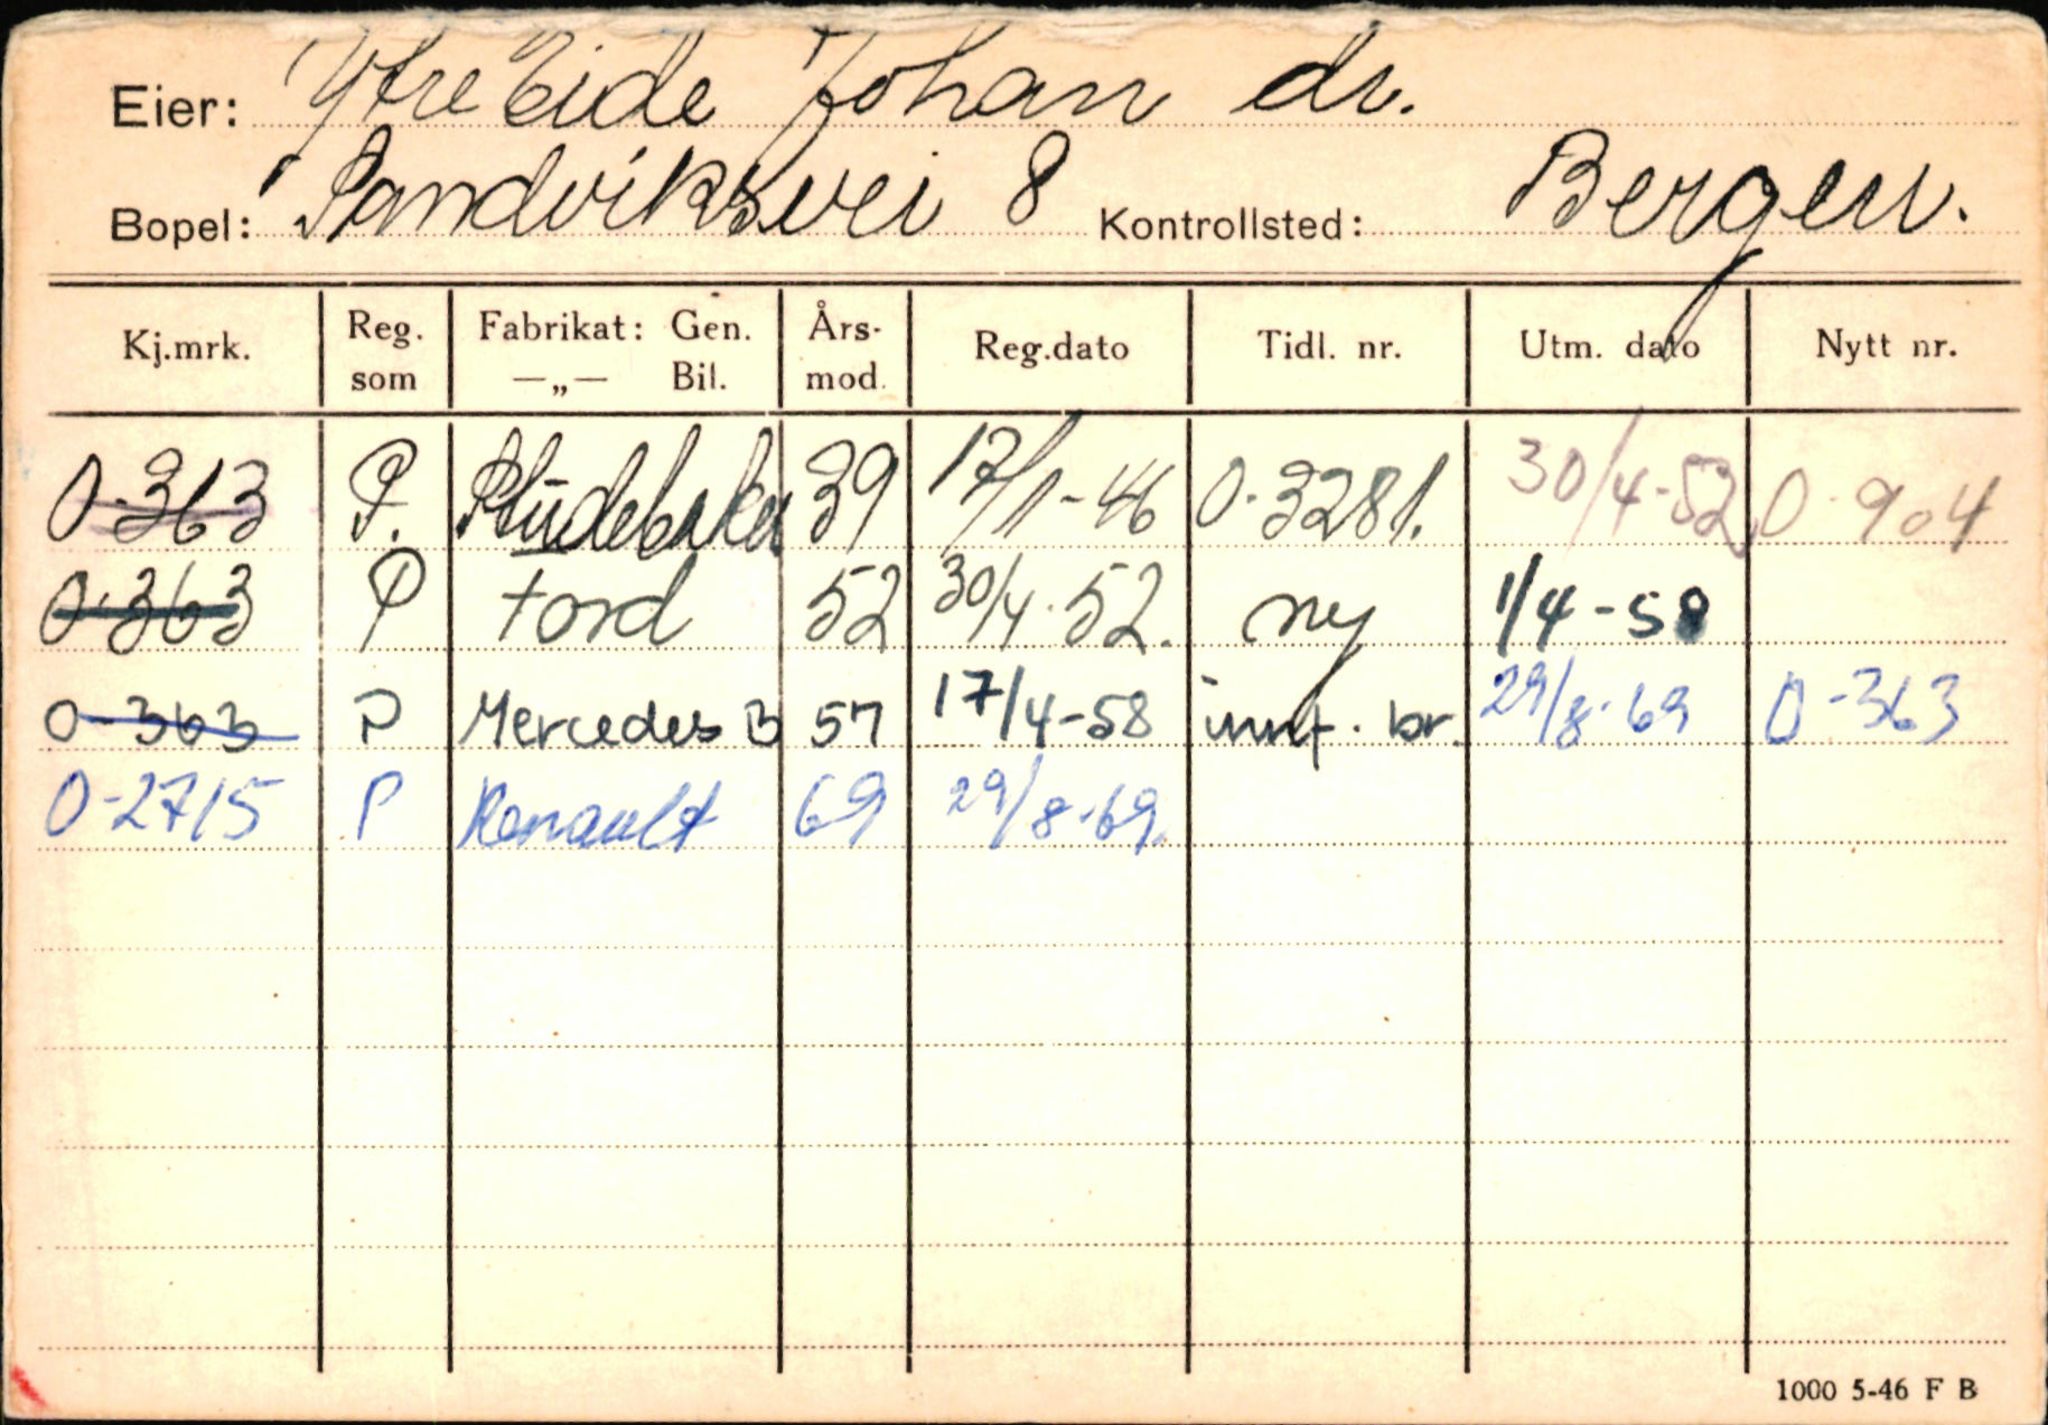 Eier: Ytre Eide Johan dr.
Bopel: Sandviksvei 8 Kontrollsted: Bergen.
Kj.mrk. Reg. som Fabrikat: Gen. —„— Bil. Års-mod. Reg.dato Tidl. nr. Utm. dato Nytt nr.
O-363 P. Studebaker 39 17/1-46 O-3281. 30/4-52 O-904
O-363 P Ford 52 30/4-52. ny 1/4-58
O-363 P Mercedes B 57 17/4-58 innf. br. 29/8-69 O-363
O-2715 P Renault 69 29/8-69.
1000 5-46 F B